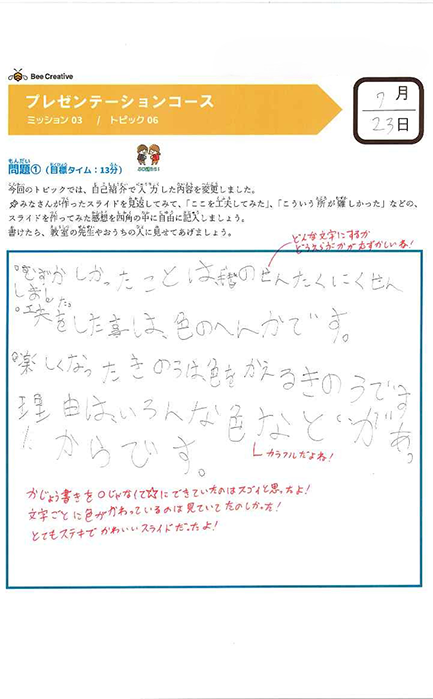 Bee Creative
プレゼンテーションコース
ミッション 03 / トピック 06
7月
23日
問題① (目標タイム：13分)
今回のトピックでは、自己紹介で入力した内容を変更しました。
みなさんが作ったスライドを見返してみて、「ここを工夫してみた」、「こういう所が難しかった」などの、
スライドを作ってみた感想を四角の中に自由に記入しましょう。
書けたら、教室の先生やおうちの人に見せてあげましょう。
どんな文字にするか
むずかしかったことは のせんたくにくせん
しました。
工夫をした事は、色のへんかです。
楽しくなったきのうは色をかえるきのうです
理由は、いろんな色などがあっ
からです。
カラフルだよね!
かじょう書きを○じゃなくて☆にできていたのはスゴイと思ったよ!
文字ごとに色がかわっているのは見ていてたのしかった!
とてもステキでかわいいスライドだったよ!